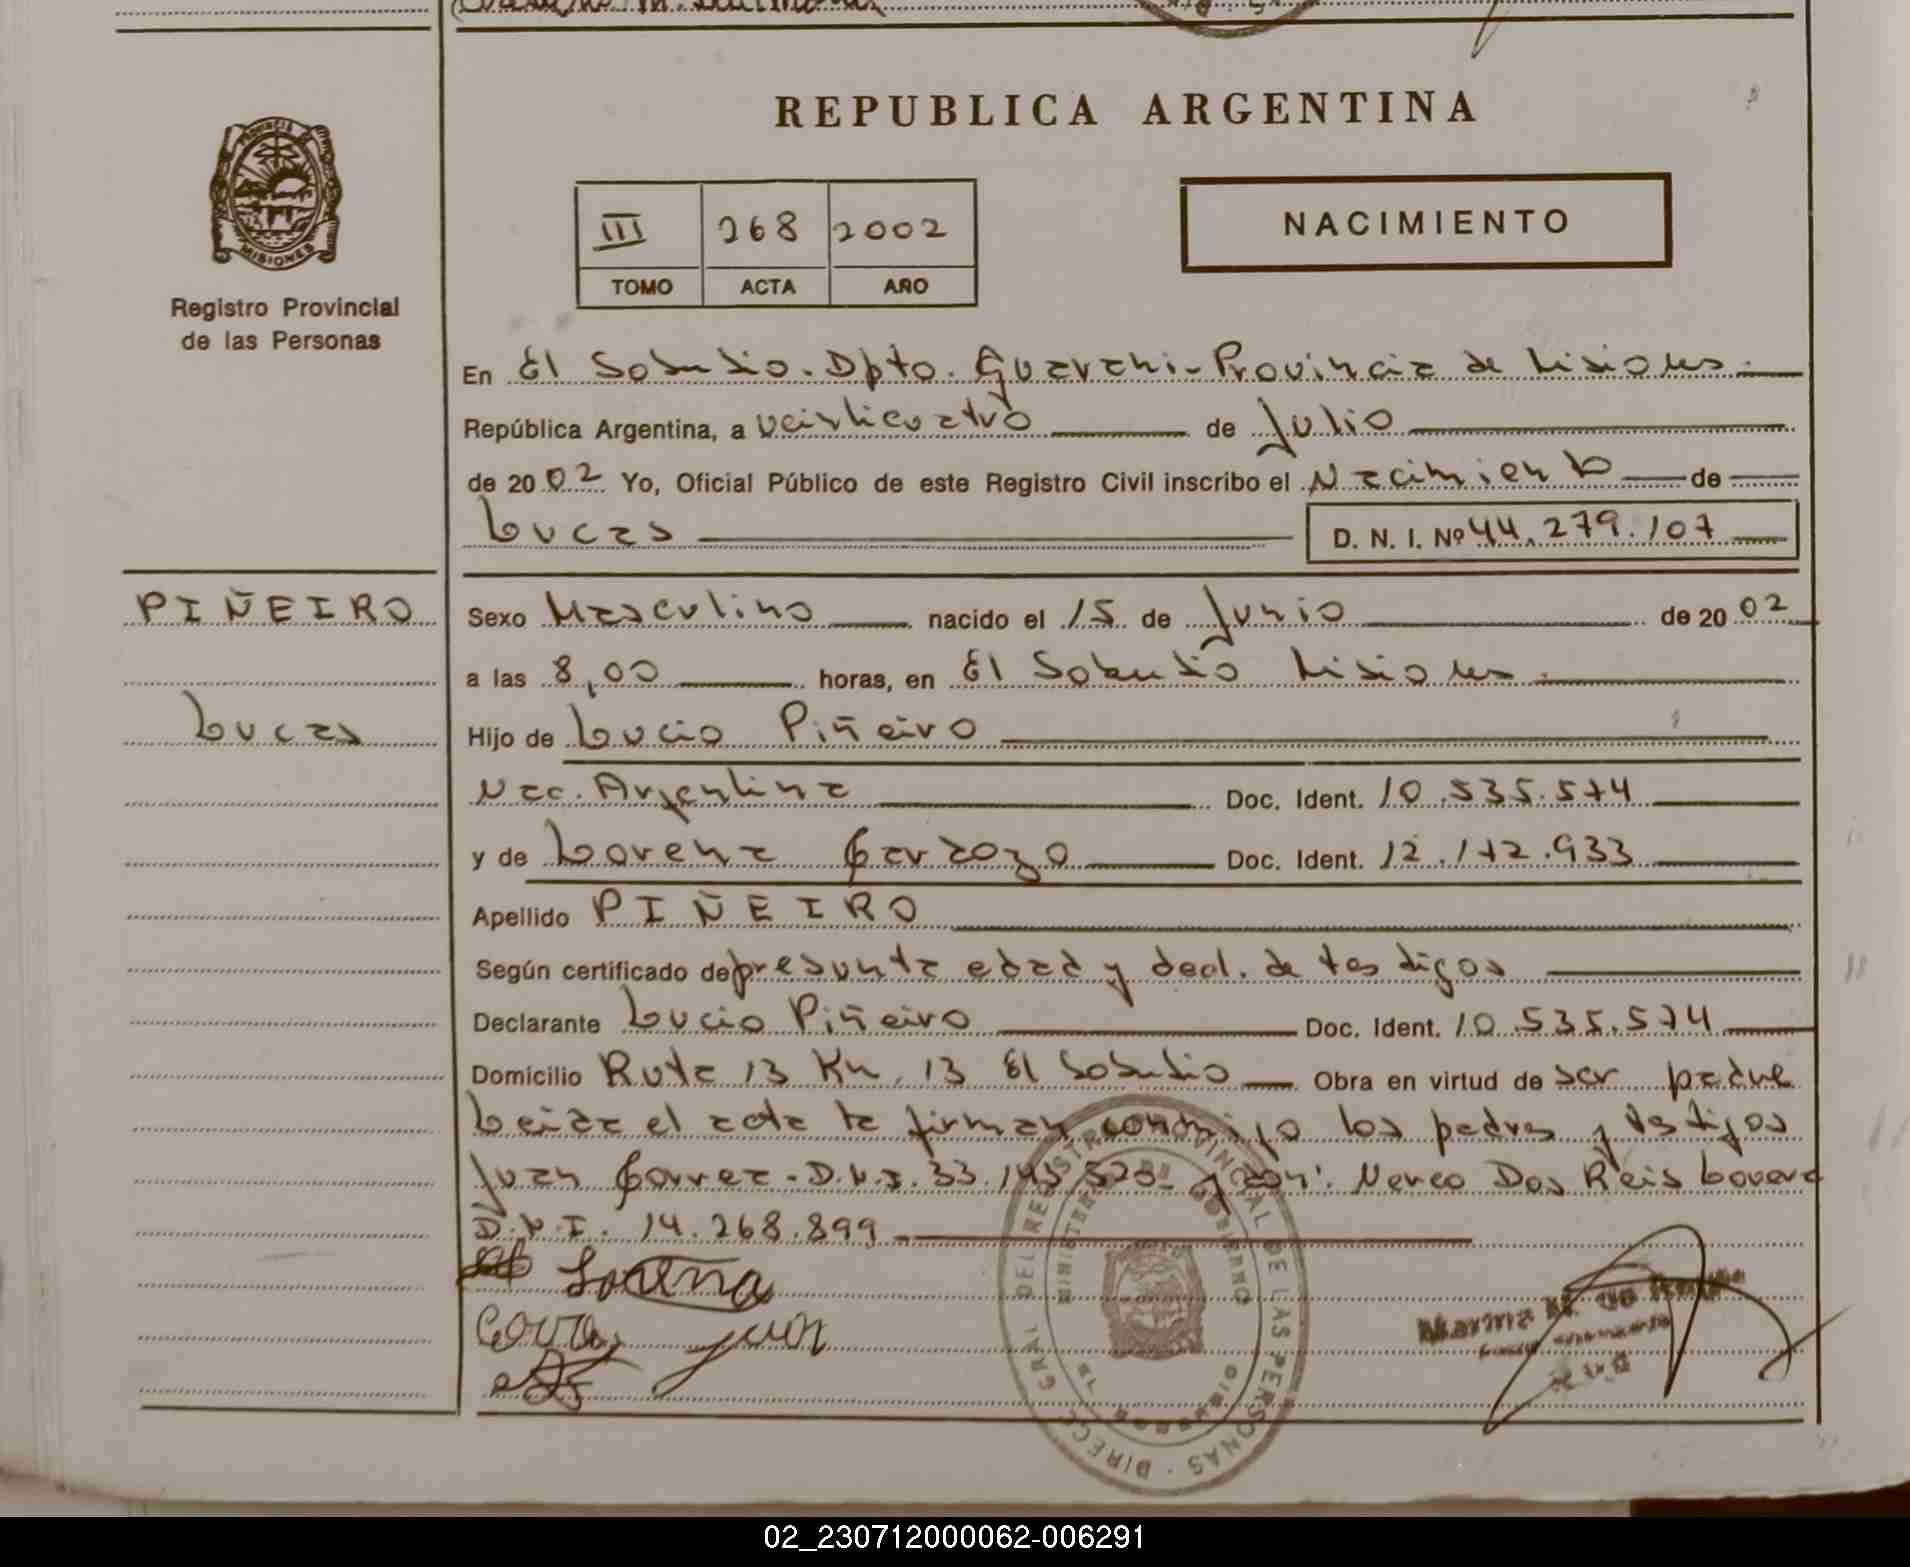 REPUBLICA ARGENTINA
PROVINCIA DE
MISIONES
Registro Provincial
de las Personas
III 268 2002
TOMO ACTA AÑO
NACIMIENTO
En El Soberbio. Dpto. Guarani-Provincia de Misiones.
República Argentina, a veinticuatro de Julio
de 2002 Yo, Oficial Público de este Registro Civil inscribo el Nacimiento de
Lucas D. N. I. Nº 44.279.107
PIÑEIRO
Lucas
Sexo Masculino nacido el 15 de Junio de 2002
a las 8,00 horas, en El Soberbio Misiones.
Hijo de Lucio Piñeiro
Nac. Argentina Doc. Ident. 10.535.574
y de Lorena Doc. Ident. 12.172.933
Apellido PIÑEIRO
Según certificado de presunta edad y decl. de testigos
Declarante Lucio Piñeiro Doc. Ident. 10.535.574
Domicilio Ruta 13 Km. 13 El Soberbio Obra en virtud de ser padre
Leida el acta la firman conmigo los padres y testigos
Juan Correa - D.N.I. 33.143.523- y don: Nereo Dos Reis
D.N.I. 14.268.899
Lorena
Juan
DIRECC. GRAL. DEL REGISTRO PROVINCIAL DE LAS PERSONAS
MINISTERIO DE GOBIERNO
EL SOBERBIO
02_230712000062-006291